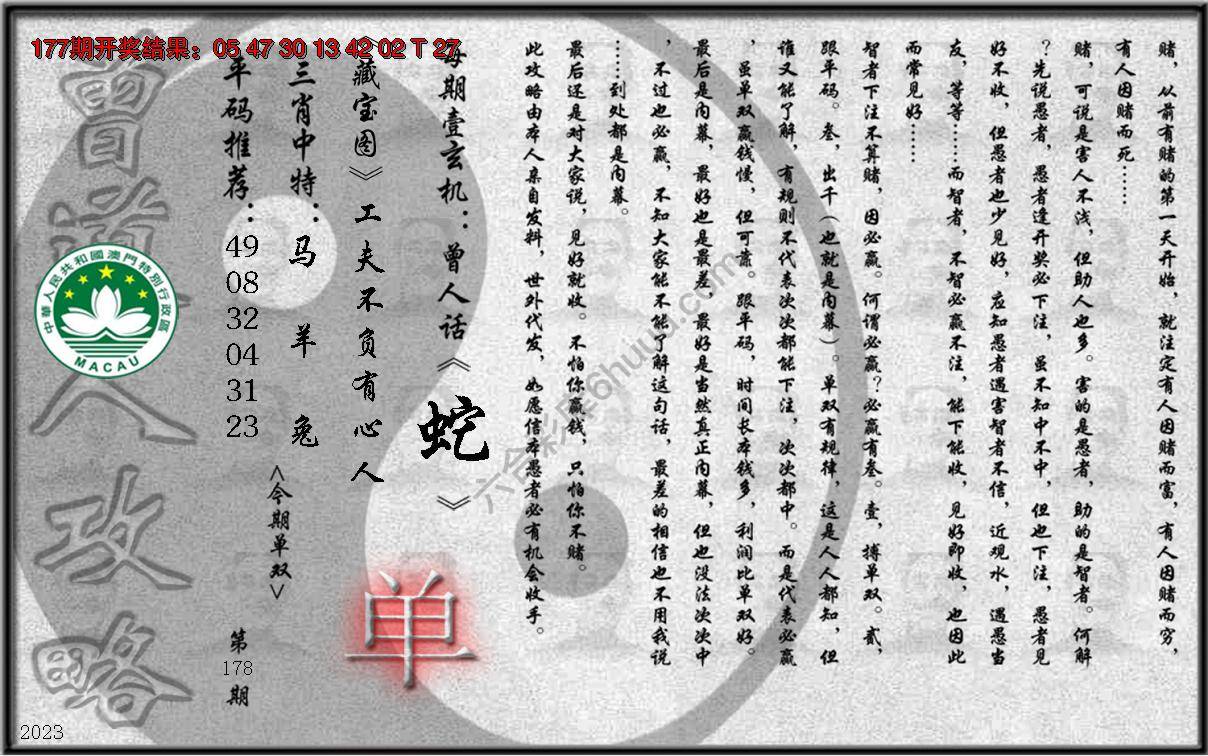 177期开奖结果：05 47 30 13 42 02 T 27
赌，从前有赌的第一天开始，就注定有人因赌而富，有人因赌而穷，
有人因赌而死……
赌，可说是害人不浅，但助人也多。害的是愚者，助的是智者。何解
？先说愚者，愚者逢开奖必下注，虽不知中不中，但也下注，愚者见
好不收，但愚者也少见好，应知愚者遇害智者不信，近观水，遇愚当
友，等等……而智者，不智必赢不注，能下能收，见好即收，也因此
而常见好……
智者下注不算赌，因必赢。何谓必赢？必赢有叁。壹，搏单双。贰，
跟平码。叁，出千（也就是内幕）。单双有规律，这是人人都知，但
谁又能了解，有规则不代表次次都能下注，次次都中。而是代表必赢
，虽单双赢钱慢，但可靠。跟平码，时间长本钱多，利润比单双好。
最后是内幕，最好也是最差，最好是当然真正内幕，但也没法次次中
，不过也必赢，不知大家能不能了解这句话，最差的相信也不用我说
……到处都是内幕。
最后还是对大家说，见好就收。不怕你赢钱，只怕你不赌。
此攻略由本人亲自发料，世外代发，如愿信本愚者必有机会收手。
每期壹玄机：曾人话《蛇》
《藏宝图》工夫不负有心人
三肖中特：马 羊 兔
<今期单双>
单
平码推荐：49 08 32 04 31 23
第178期
曾道人攻略
中華人民共和國澳門特別行政區
MACAU
六合彩库6huuu.com
2023